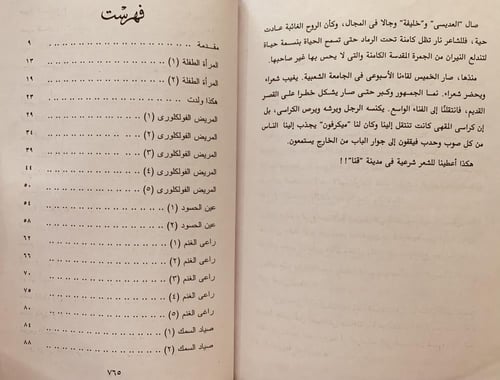 صال "العديسى" و"خليفة" وجالا فى المجال، وكأن الروح الغائبة عادت
حية، فللشاعر نار تظل كامنة تحت الرماد حتى تسمح الحياة بنسمة حياة
لتندلع النيران من الجمرة المقدسة الكامنة والتى لا يحس بها غير صاحبها.
منذها، صار الخميس لقاءنا الأسبوعى فى الجامعة الشعبية. يغيب شعراء
ويحضر شعراء. نما الجمهور وكبر حتى صار يشكل خطرا على القصر
القديم، فانتقلنا إلى الفناء الواسع. يكنسه الرجل ويرشه ويرص الكراسى، بل
إن كراسى المقهى كانت تنتقل إلينا وكان لنا "ميكرفون" يجذب إلينا الناس
من كل صوب وحدب فيقفون إلى جوار الباب من الخارج يستمعون.
هكذا أعطينا للشعر شرعية فى مدينة "قنا"!!
فهرست
مقدمة .. .. .. .. .. .. ٩
المرأة الطفلة (١) .. .. .. .. .. .. ١٣
المرأة الطفلة (٢) .. .. .. .. .. ..
هكذا ولدت .. .. .. .. .. ..
المريض الفولكلورى (١) .. .. .. .. .. .. ٢٩
المريض الفولكلورى (٢) .. .. .. .. .. .. ٣٤
المريض الفولكلورى (٣) .. .. .. .. .. .. ٣٩
المريض الفولكلورى (٤) .. .. .. .. .. .. ٤٤
المريض الفولكلورى (٥) .. .. .. .. .. .. ٥٠
عين الحسود (١) .. .. .. .. .. .. ٥٤
عين الحسود (٢) .. .. .. .. .. .. ٥٨
راعى الغنم (١) .. .. .. .. .. .. ٦٢
راعى الغنم (٢) .. .. .. .. .. .. ٦٦
راعى الغنم (٣) .. .. .. .. .. .. ٧٠
راعى الغنم (٤) .. .. .. .. .. .. ٧٥
راعى الغنم (٥) .. .. .. .. .. .. ٨٠
صياد السمك (١) .. .. .. .. .. .. ٨٤
صياد السمك (٢) .. .. .. .. .. .. ٨٨
٧٦٥